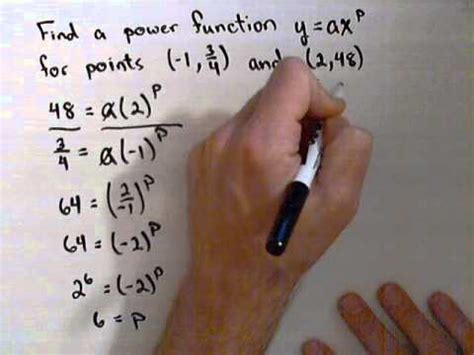 Find a power function y = ax^p
for points (-1, 3/4) and (2,48)
48 = a(2)^p
3/4 = a(-1)^p
64 = (2/-1)^p
64 = (-2)^p
2^6 = (-2)^p
6 = p